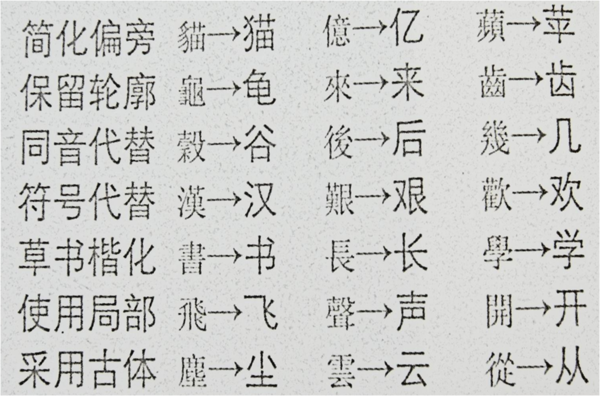 简化偏旁 貓→猫 億→亿 蘋→苹
保留轮廓 龜→龟 來→来 齒→齿
同音代替 穀→谷 後→后 幾→几
符号代替 漢→汉 艱→艰 歡→欢
草书楷化 書→书 長→长 學→学
使用局部 飛→飞 聲→声 開→开
采用古体 塵→尘 雲→云 從→从